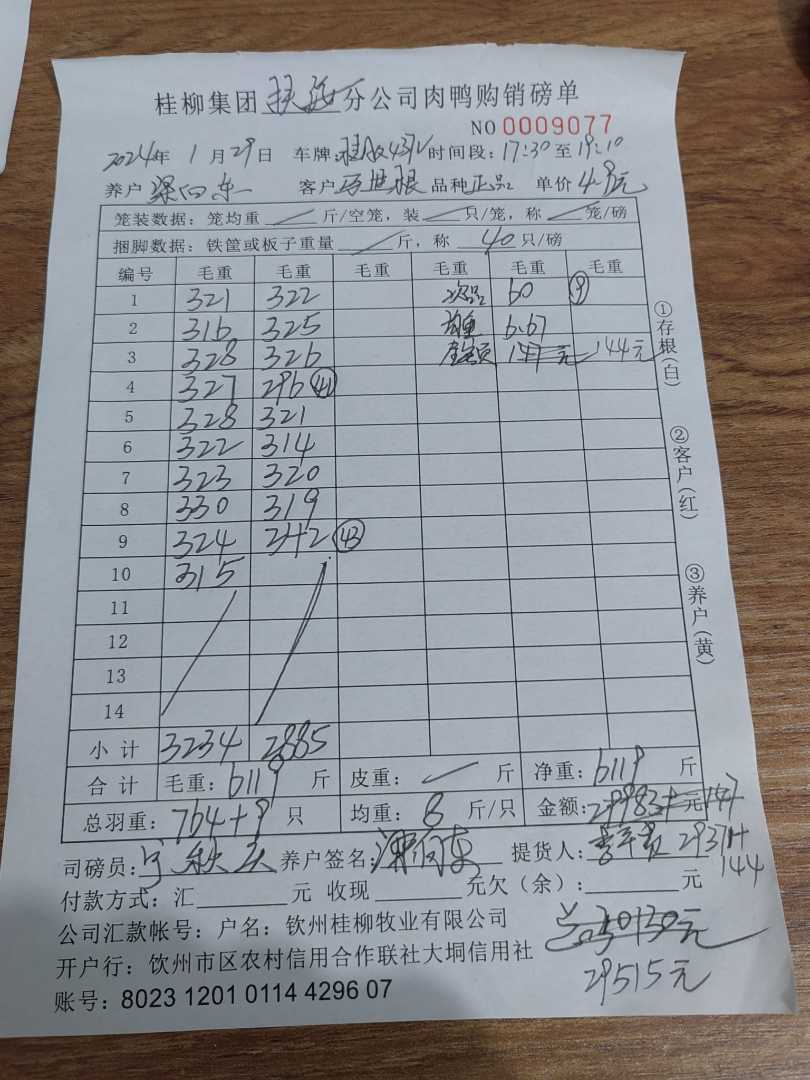 桂柳集团 扶 分公司肉鸭购销磅单
NO 0009077
2024年 1 月 29 日 车牌: 时间段: 17:30 至 19:10
养户 梁向东 客户 品种 正品 单价 4.8元
笼装数据: 笼均重 斤/空笼, 装 只/笼, 称 笼/磅
捆脚数据: 铁筐或板子重量 斤, 称 40 只/磅
编号 毛重 毛重 毛重 毛重 毛重 毛重
1 321 322 次品 60 ⑨
2 316 325 均重 6.67
3 328 326 金额 147元 144元
4 327 296 ㊶
5 328 321
6 322 314
7 323 320
8 330 319
9 324 342 ㊸
10 315
11
12
13
14
小计 3234 2885
合计 毛重: 6119 斤 皮重: 斤 净重: 6119 斤
总羽重: 764+9 只 均重: 8 斤/只 金额: 29983+ 元 147
29371+
144
司磅员: 养户签名: 梁向东 提货人:
付款方式: 汇 元 收现 元欠(余): 元
公司汇款帐号: 户名: 钦州桂柳牧业有限公司
总 30130元
开户行: 钦州市区农村信用合作联社大垌信用社
29515元
账号: 8023 1201 0114 4296 07
①存根(白)
②客户(红)
③养户(黄)